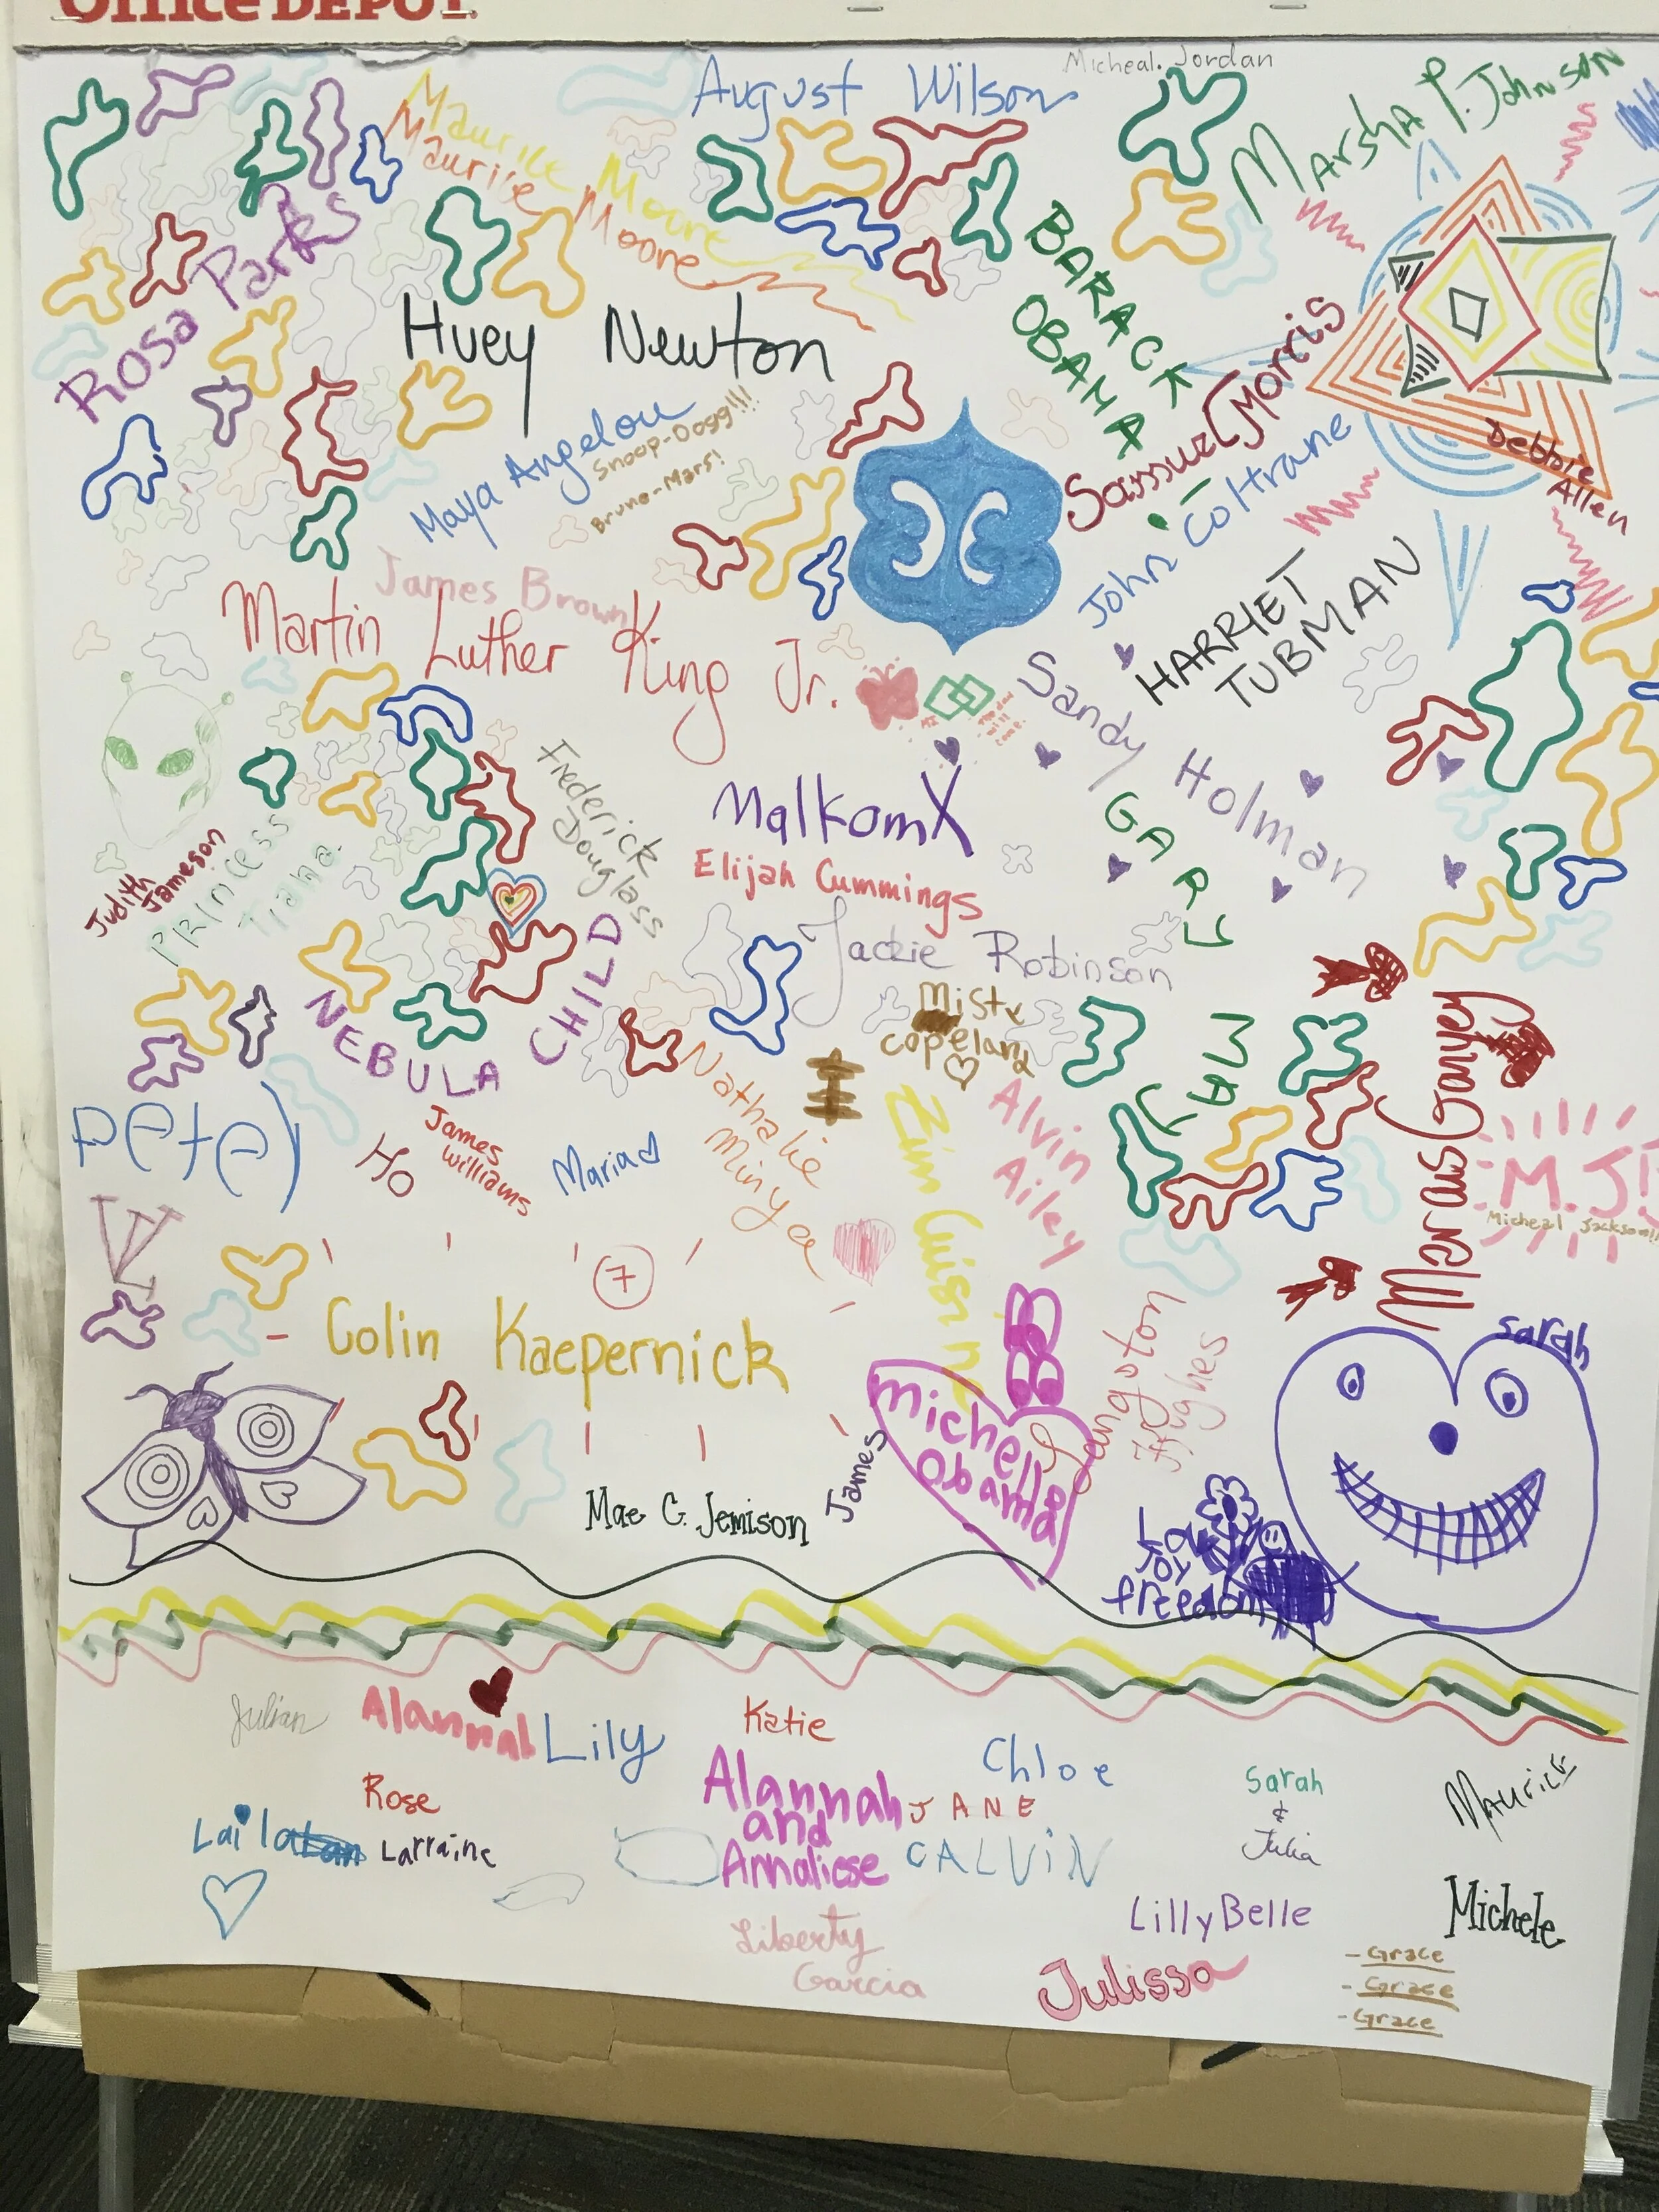 Office DEPOT.
Micheal.Jordan
August Wilson
Marsha P. Johnson
Maurice Moore
Maurice Moore
Rosa Parks
BARACK
OBAMA
Huey Newton
Samuel Morris
Maya Angelou
Snoop-Dogg!!!
Bruno-Mars!
John Coltrane
Debbie
Allen
James Brown
HARRIET
TUBMAN
Martin Luther King Jr.
Sandy Holman
Frederick
Douglass
MalkomX
GARY
Judith
Jameson
PRINCESS
Tiana.
Elijah Cummings
Jackie Robinson
NEBULA CHILD
Misty
copeland
MAY
Marcus Garvey
Nathalie
Minya
Alvin
Ailey
petey
HO
James
Williams
Maria
Zim Cuisine
M.J!
Micheal Jackson!!
7
Colin Kaepernick
Langston
Hughes
michelle
Obama
sarah
James
Mae C. Jemison
Love
Joy
freedom
Julian
Alannah
Lily
Katie
Chloe
Sarah
&
Julia
Maurice
Rose
Alannah
and
Annaliese
JANE
Laila
Larraine
CALViN
LillyBelle
Michele
Liberty
Garcia
Julissa
- Grace
- Grace
- Grace